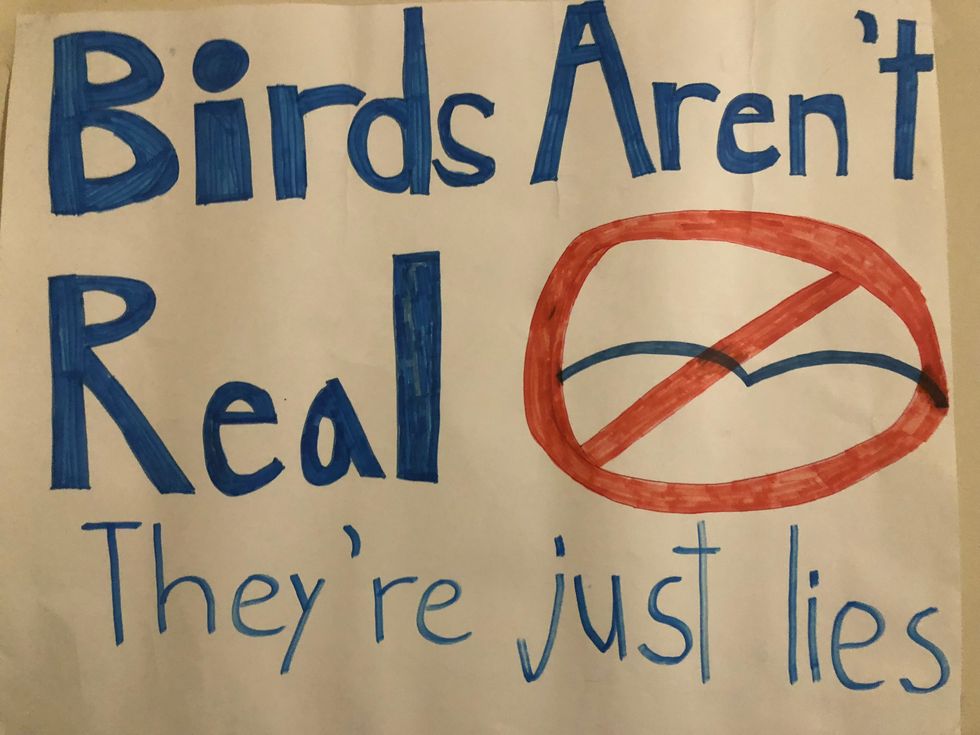 Birds Aren't
Real
They're just lies